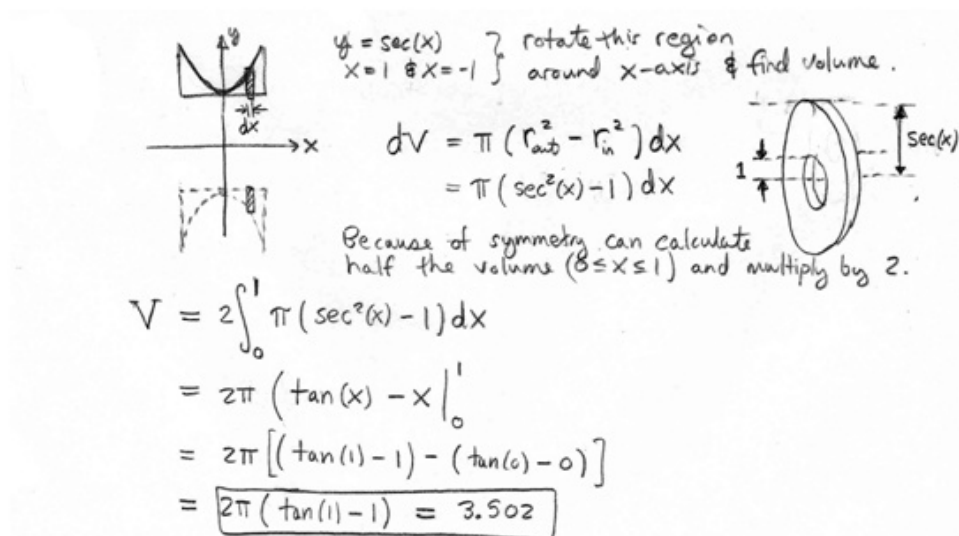 y
y = sec(x) } rotate this region
x = 1 & x = -1 } around x-axis & find volume.
dx
x
dV = π(r²out - r²in)dx
= π(sec²(x) - 1)dx
sec(x)
1
Because of symmetry can calculate
half the volume (0 ≤ x ≤ 1) and multiply by 2.
V = 2∫₀¹ π(sec²(x) - 1)dx
= 2π (tan(x) - x |₀¹
= 2π[(tan(1) - 1) - (tan(0) - 0)]
= 2π(tan(1) - 1) = 3.502